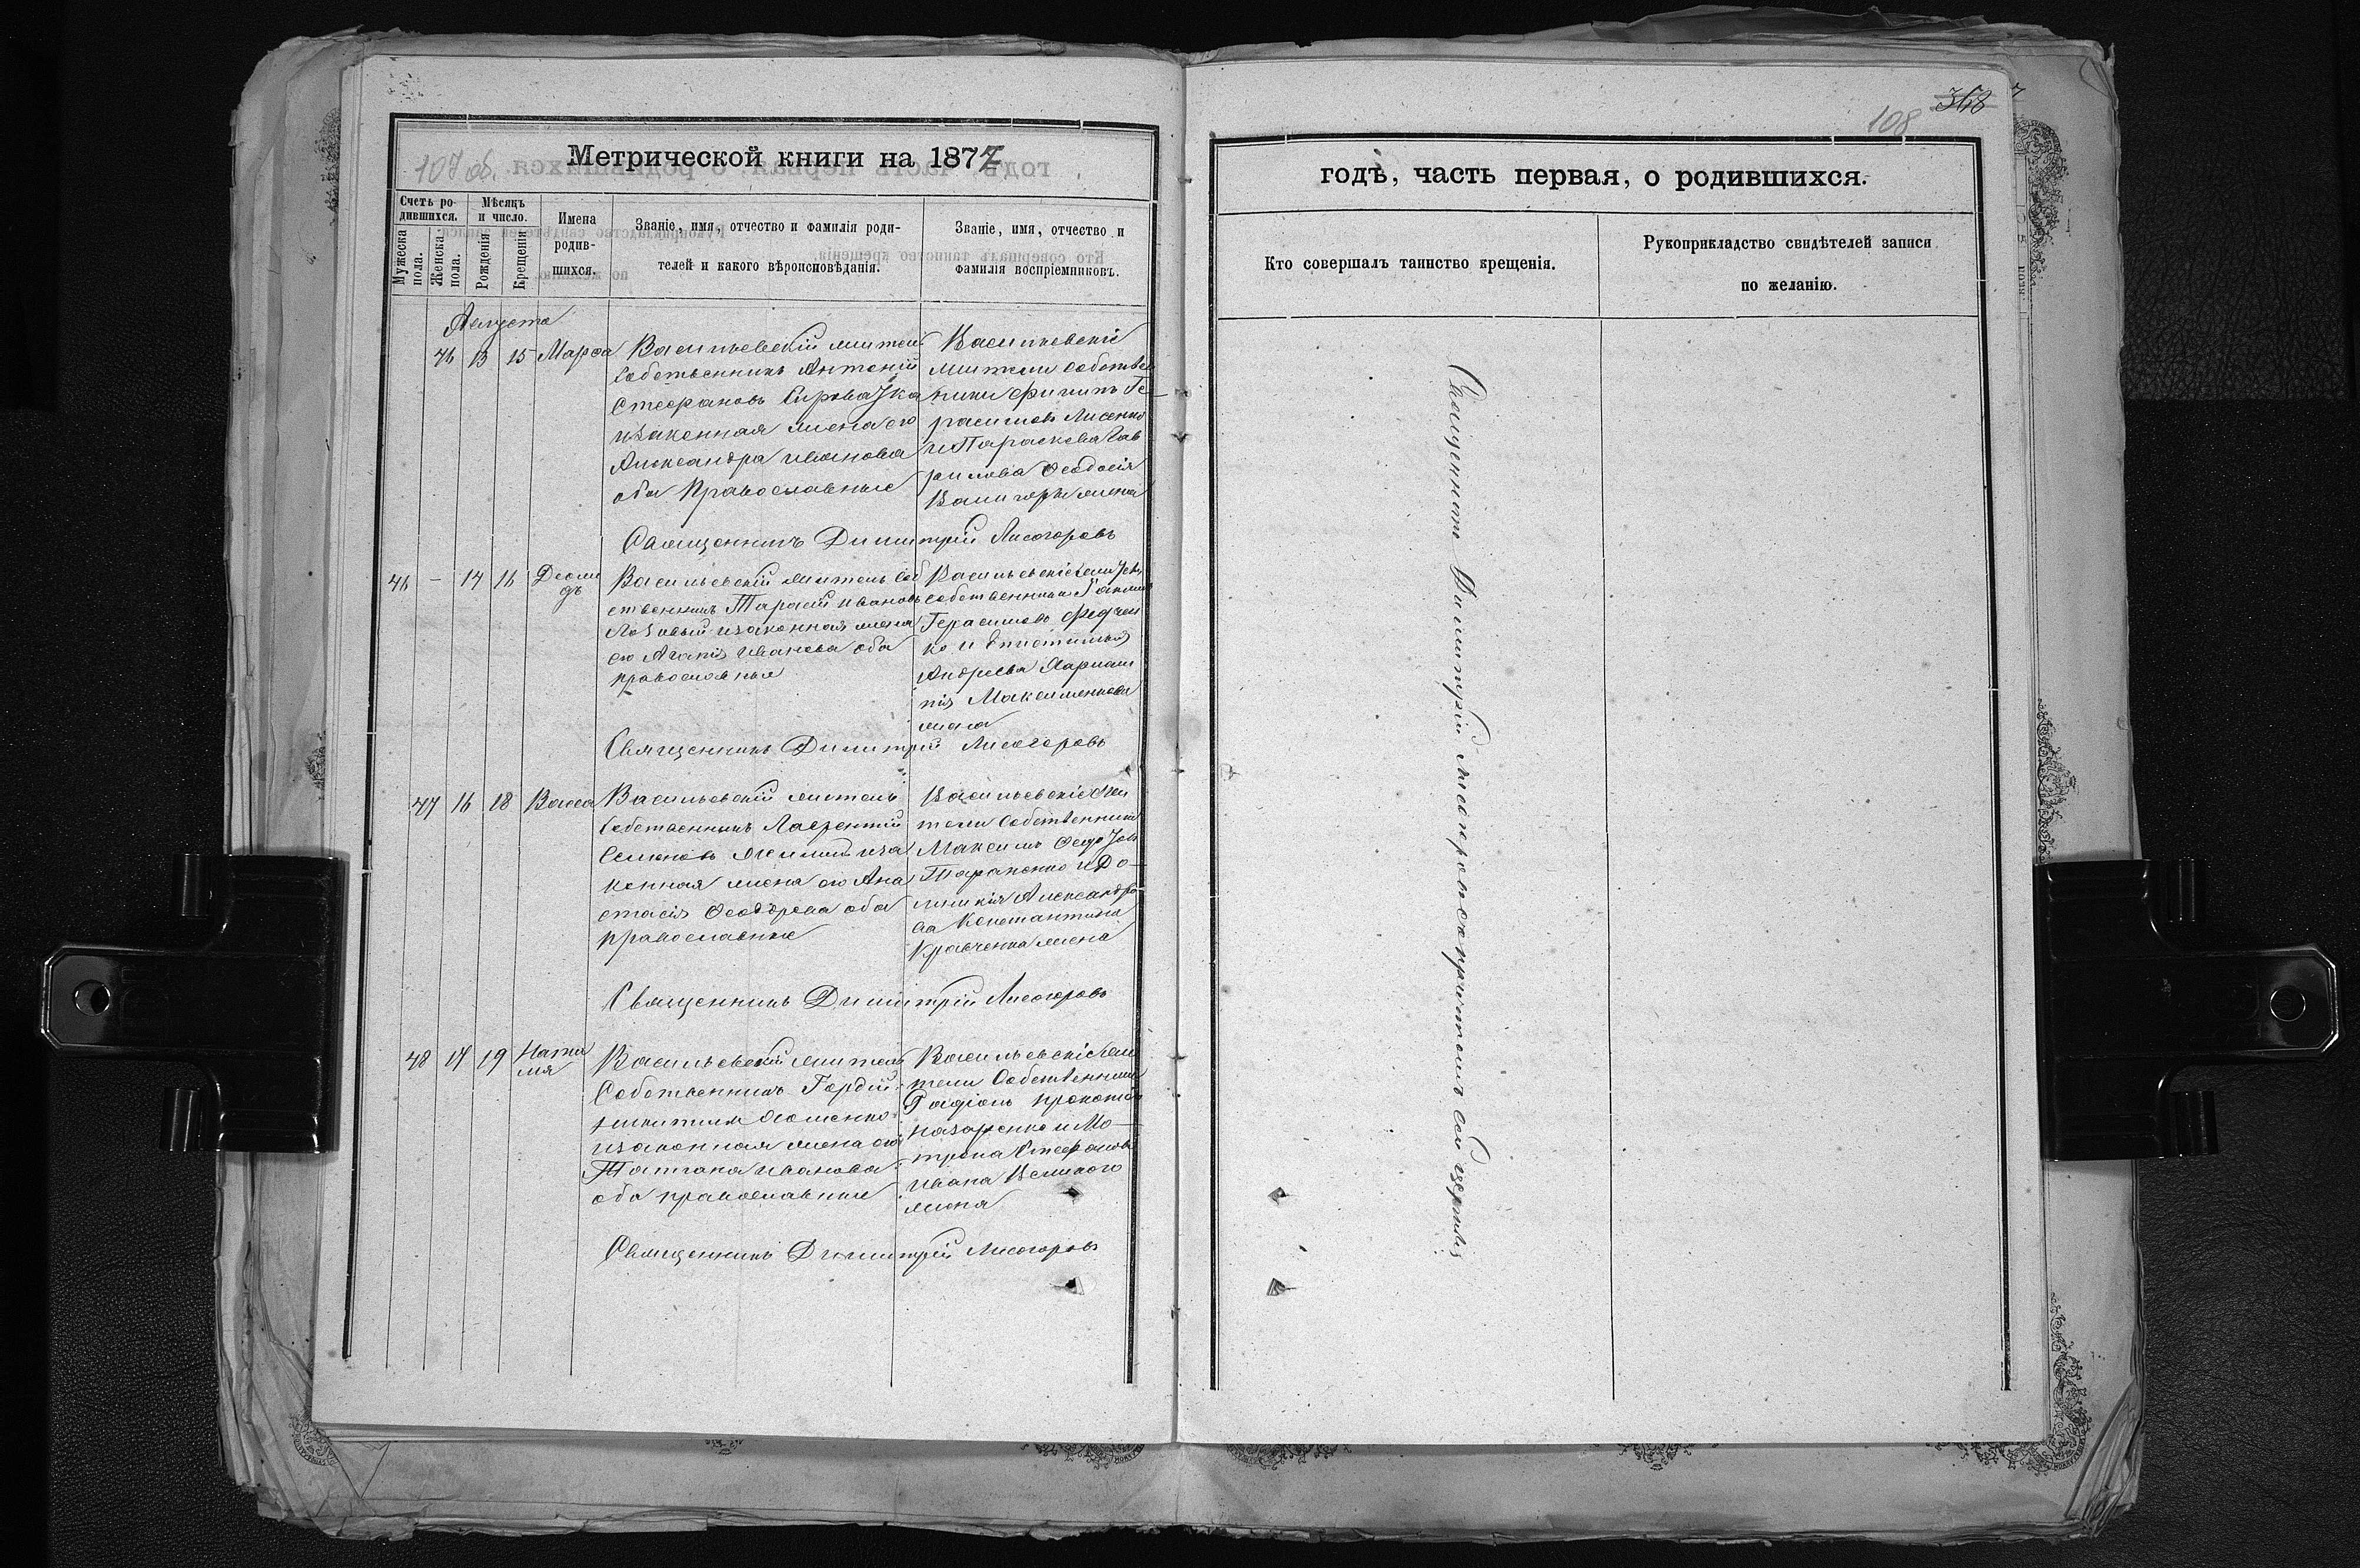 107 об.
Метрической книги на 1877
Счетъ ро-
дившихся.
Мужеска
пола.
Женска
пола.
Мѣсяцъ
и число.
Рожденія
Крещенія
Имена
родив-
шихся.
Званіе, имя, отчество и фамилія роди-
телей и какого вѣроисповѣданія.
Званіе, имя, отчество и
фамилія воспріемниковъ.
Августа
46 13 15 Марѳа
Васильевскій житель
собственникъ Антоній
Стефановъ
изаконная жена его
Александра Иванова
оба Православные
Васильевскіе
жители собствен
ники Филипъ Ге
расимовъ Лисенко
и Параскева Гав
рилова Ѳеодосія
жена
Священникъ Димитрій Лисогоровъ
46 — 14 16 Деоми
дъ
Васильевскій житель соб
ственникъ Тарасій Ивановъ
Лозовый изаконная жена
его Агапія Иванова оба
православные
Васильевскіе жители
собственники
Герасимовъ Федчен
ко и
Андреева
Максименкова
жена
Священникъ Димитрій Лисогоровъ
47 16 18 Васса
Васильевскій житель
собственникъ Лаврентій
Семеновъ иза
конная жена его Ана
стасія Ѳеодорова оба
православные
Васильевскіе жи
тели собственники
Максимъ
Тараненко и До
микія Александро
ва Константина
Кравченка жена
Священникъ Димитрій Лисогоровъ
48 17 19 Ната
лія
Васильевскій житель
Собственникъ Гордій
Никитинъ
изаконная жена его
Татіана Иванова
оба православные
Васильевскіе жи
тели Собственники
Родіонъ
Назаренко и Мо
трона Стефанова
Ивана Великого
жена
Священникъ Димитрій Лисогоровъ
368
108
годѣ, часть первая, о родившихся.
Кто совершалъ таинство крещенія.
Рукоприкладство свидѣтелей записи
по желанію.
Священникъ Димитрій Лисогоровъ съ причтомъ